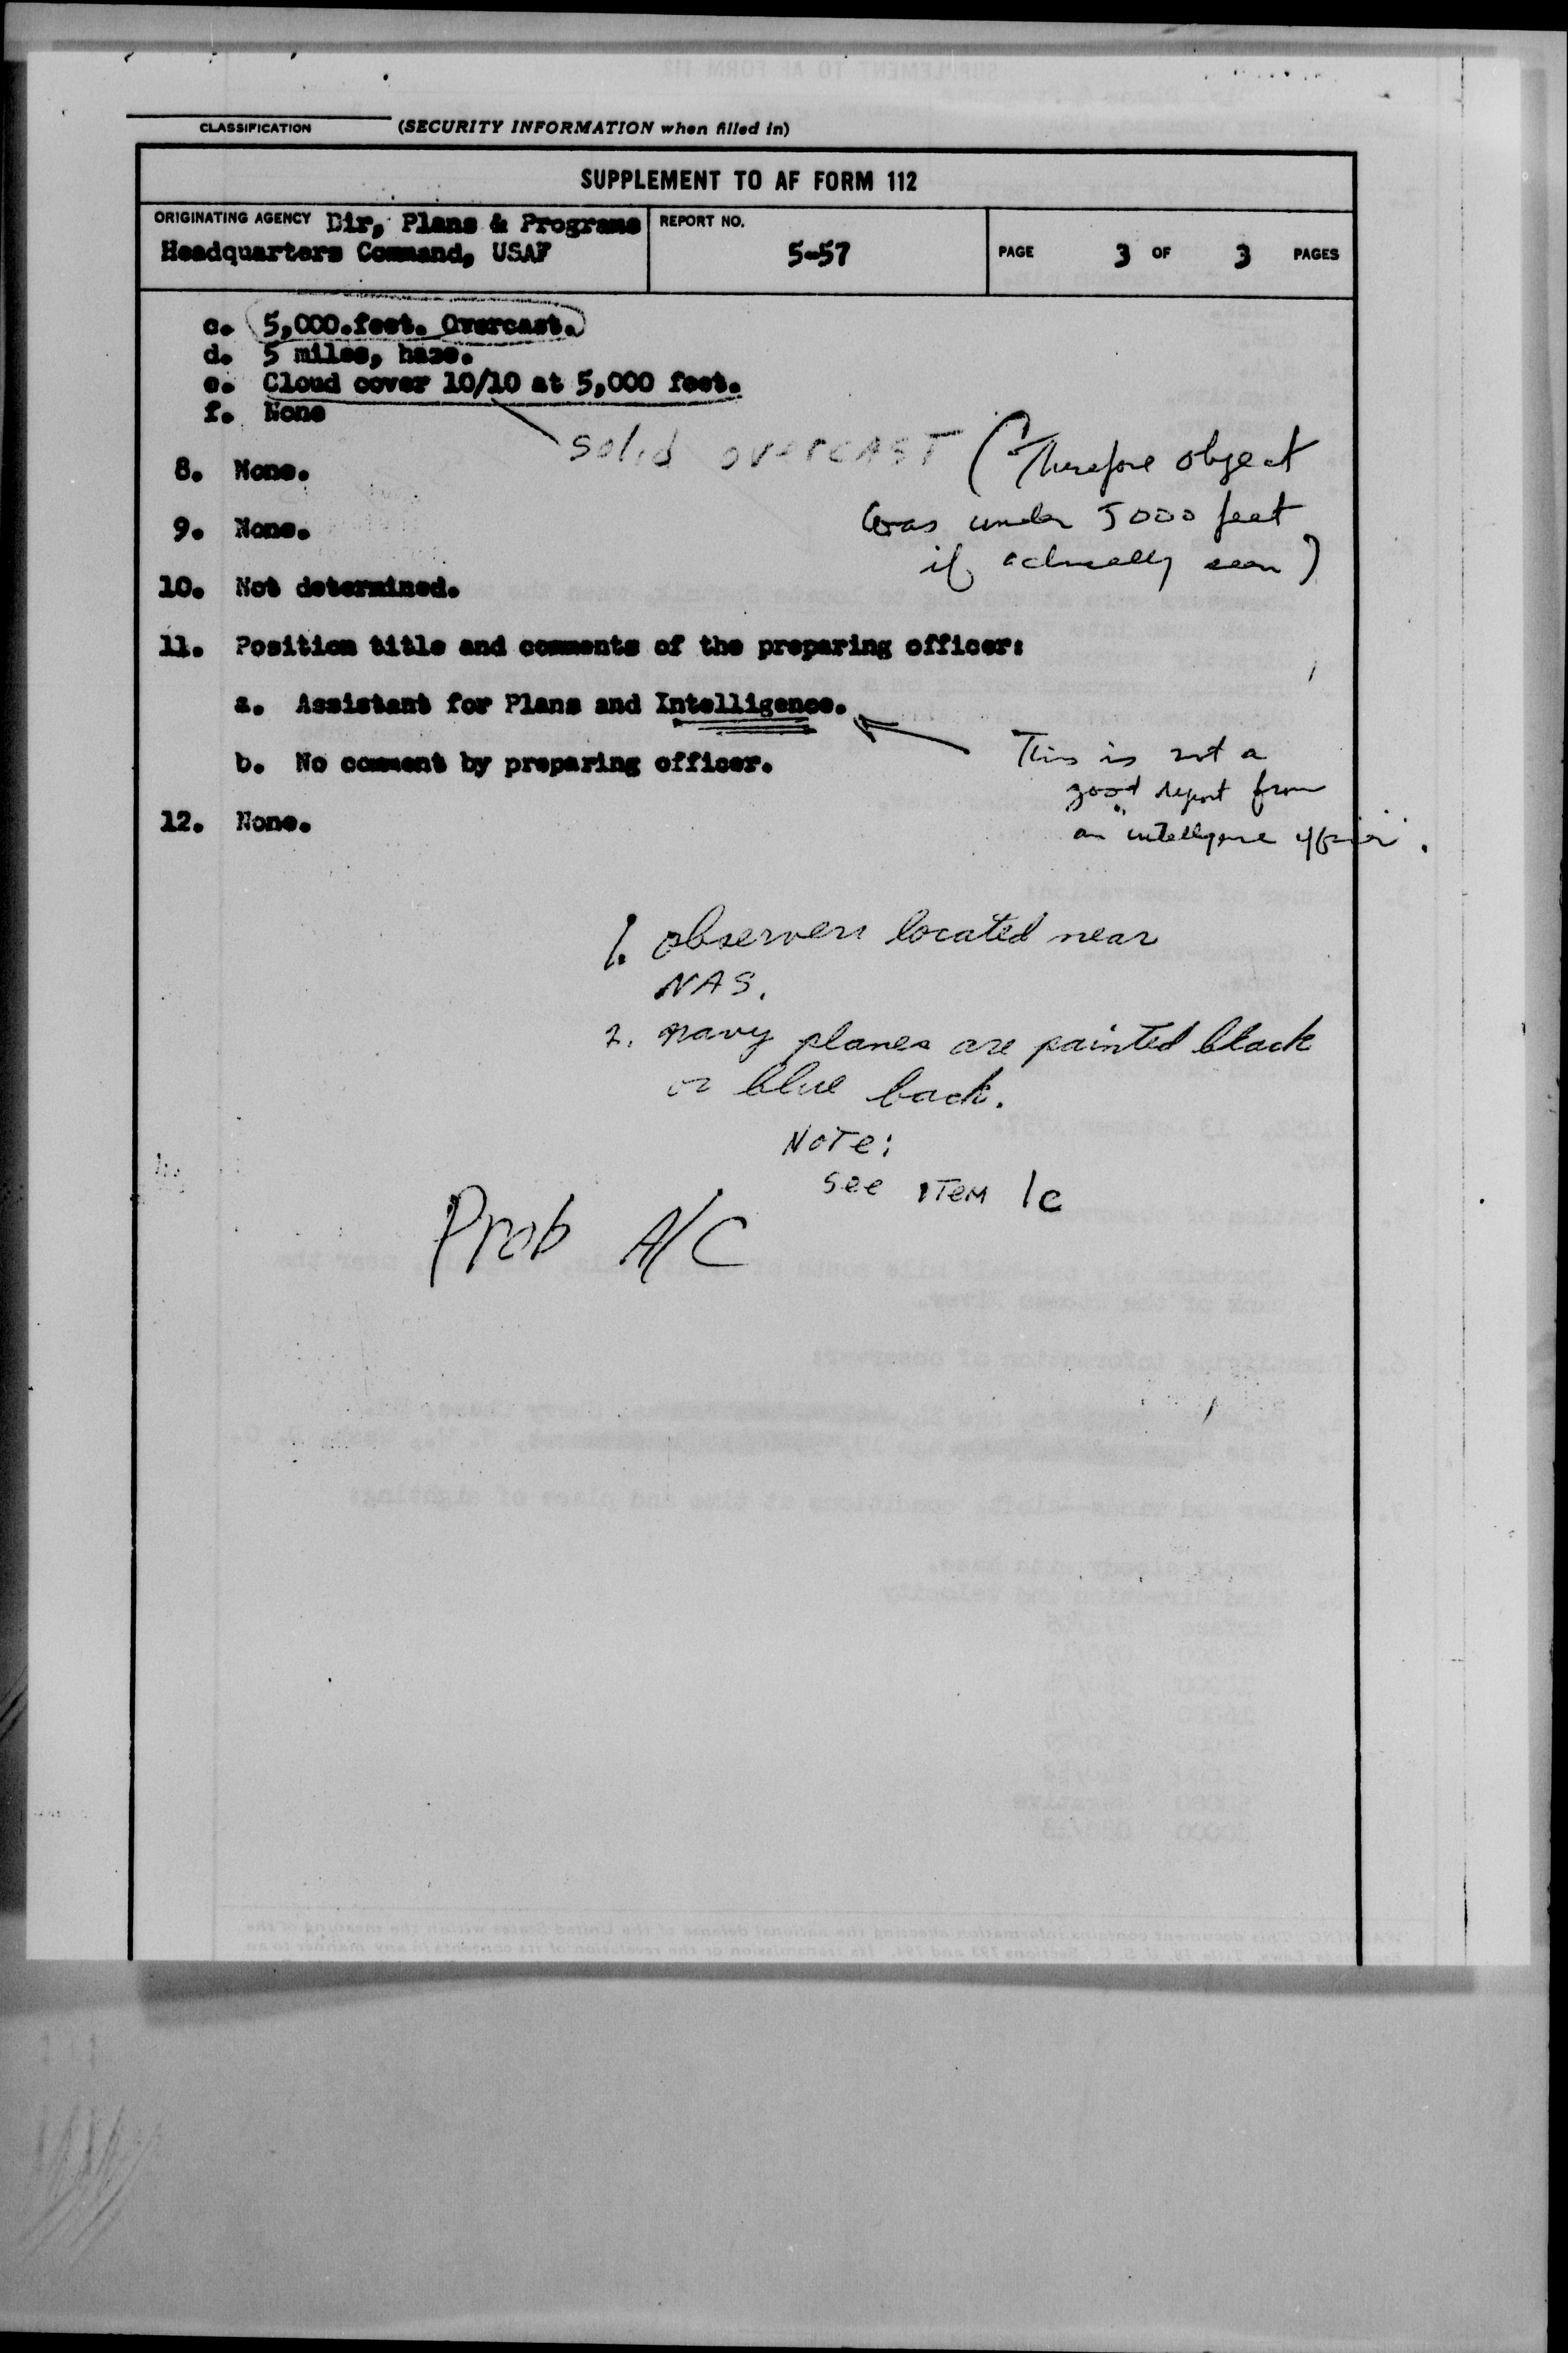 CLASSIFICATION (SECURITY INFORMATION when filled in)
SUPPLEMENT TO AF FORM 112
ORIGINATING AGENCY Dir, Plans & Programs
Headquarters Command, USAF
REPORT NO.
5-57
PAGE 3 OF 3 PAGES
c. 5,000.feet. Overcast.
d. 5 miles, haze.
e. Cloud cover 10/10 at 5,000 feet.
f. None
solid overcast (Therefore object
was under 5000 feet
if actually seen)
8. None.
9. None.
10. Not determined.
11. Position title and comments of the preparing officer:
a. Assistant for Plans and Intelligence.
b. No comment by preparing officer.
This is not a
good report from
an "intelligence officer".
12. None.
1. observers located near
NAS.
2. navy planes are painted black
or blue back.
Note:
see item 1c
Prob A/C